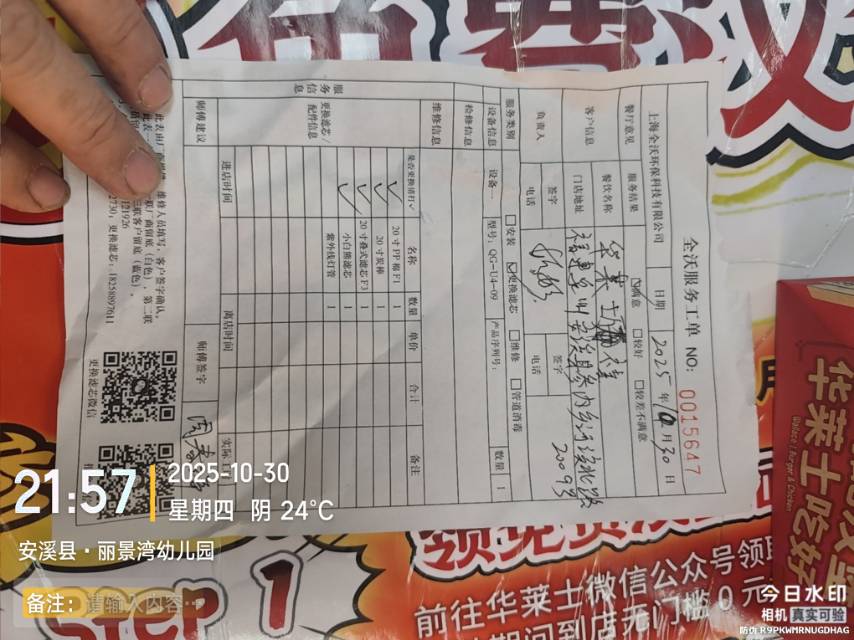 全沃服务工单 NO: 0015647
上海全沃环保科技有限公司 日期 2025年10月30日
餐厅意见 服务结果 ☑满意 □较好 □较差不满意
客户信息 餐饮名称 华莱士
门店地址 福建泉州安溪县参内乡
200号
负责人 签字 签字
电话 电话
服务类别 □安装 ☑更换滤芯 □维修 □管道消毒
设备信息 设备一 型号: QG-U4-09 产品序列号: 数量 1
检修信息
维修信息
服务信息
更换滤芯/配件信息
是否更换请打✓ 名称 数量 单价 合计 备注
✓ 20寸PP棉F1 1
✓ 20寸炭棒 1
✓ 20寸叠式滤芯F3 1
✓ 小白熊滤芯 1
紫外线灯管 1
进店时间 离店时间
师傅建议 师傅签字
维修人员填写,客户签字确认,
厂商留底(白色),第二联
三联客户留底(蓝色),
121926
2730,更换滤芯:18258897611
更换滤芯微信
华莱士吃好
Wallace | Burger & Chicken
STEP 1
前往华莱士微信公众号领取
期间到店无门槛0元
21:57
2025-10-30
星期四 阴 24°C
安溪县·丽景湾幼儿园
备注: 请输入内容…
今日水印
相机 真实可验
防伪 R9PKWMRNUGDHAG